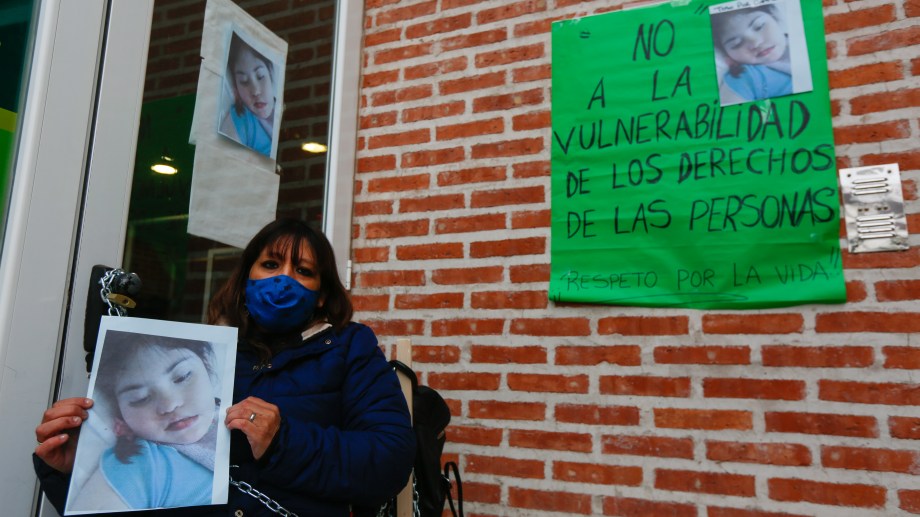 " NO
A LA
VULNERABILIDAD
DE LOS DERECHOS
DE LAS PERSONAS
"RESPETO POR LA VIDA"